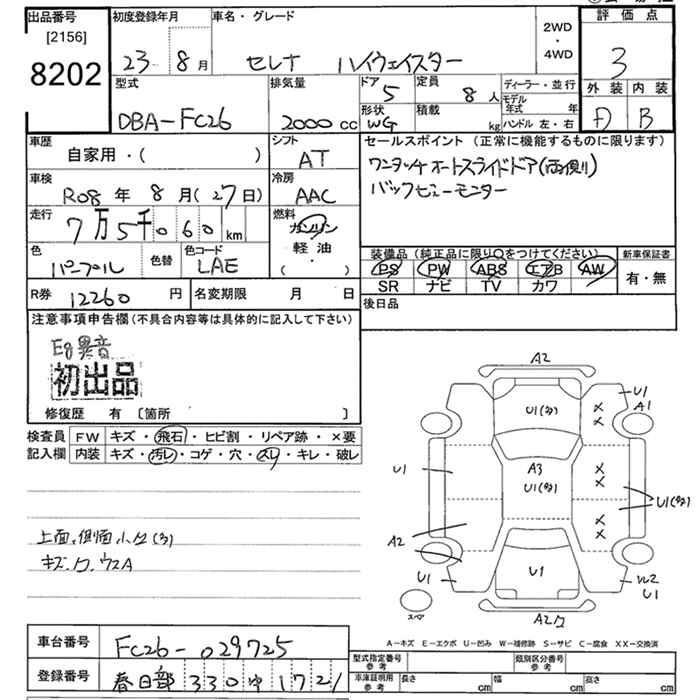 出品番号
[2156]
8202
初度登録年月
23 - 8月
車名・グレード
セレナ ハイウェイスター
2WD
・
4WD
評価点
3
型式
DBA-FC26
排気量
2000 cc
ドア
5
形状
WG
定員
8人
積載
kg
ディーラー・並行
モデル年式 年
ハンドル 左・右
外装 内装
B
車歴
自家用・( )
シフト
AT
車検
R08年8月(27日)
冷房
AAC
走行
7万5千060km
燃料
ガソリン
軽油
( )
色
パープル
色替
色コード
LAE
R券
12260円
名変期限 月 日
セールスポイント(正常に機能するものに限ります)
ワンタッチオートスライドドア(両側)
バックビューモニター
装備品(純正品に限り○をつけてください)
新車保証書
PS PW ABS エアB AW
SR ナビ TV カワ
有・無
後日品
注意事項申告欄(不具合内容等は具体的に記入して下さい)
Eg異音
初出品
修復歴 有 [箇所 ]
検査員記入欄
FW キズ・飛石・ヒビ割・リペア跡・×要
内装 キズ・汚レ・コゲ・穴・スレ・キレ・破レ
上面、側面小凹(多)
キズ、ワ、ウスA
A2
U1
A1
U1(多)
A3
U1
U1(多)
U1(多)
A2
U1
U1
U1
A2ワ
スペア
A-キズ E-エクボ U-凹み W-補修跡 S-サビ C-腐食 XX-交換済
車台番号
FC26-029725
登録番号
春日部 330 ゆ 1721
型式指定番号
参考
類別区分番号
参考
車庫証明用
参考
長さ cm
幅 cm
高さ cm